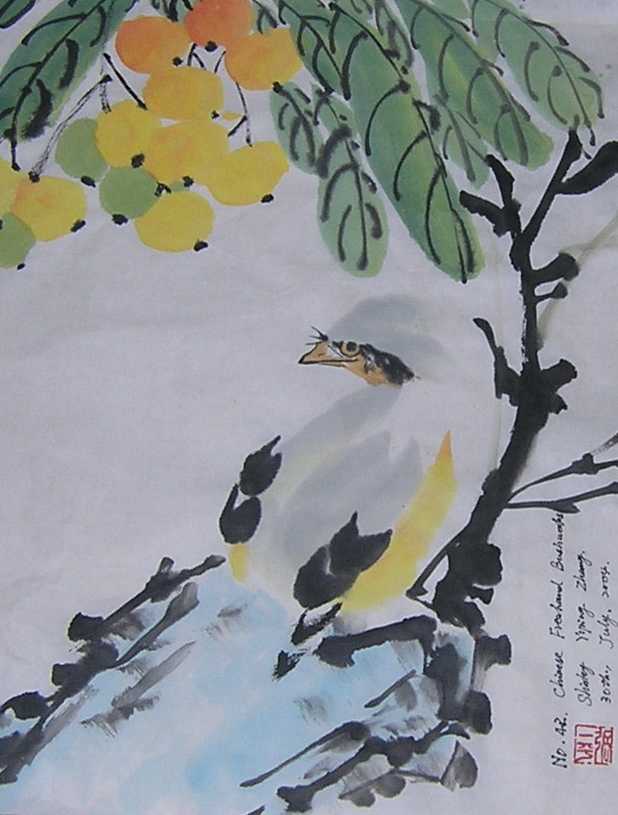 No. 42. Chinese Freehand Brushworks
Yiping Zhang.
30th, July, 2004.